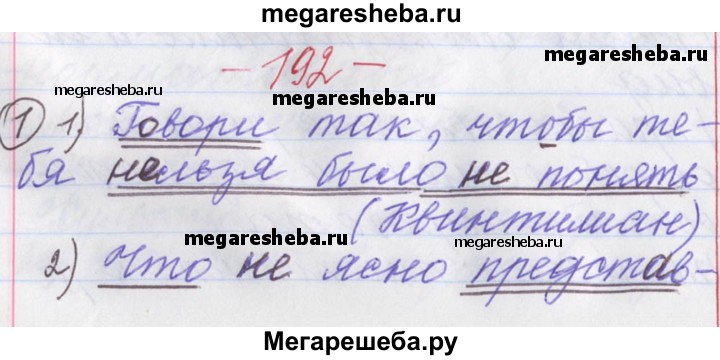 megaresheba.ru
- 192 -
megaresheba.ru
megaresheba.ru
megaresheba.ru
① 1) Говори так, чтобы те-
бя нельзя было не понять
(Квинтилиан)
megaresheba.ru
megaresheba.ru
2) Что не ясно представ-
Мегарешеба.ру